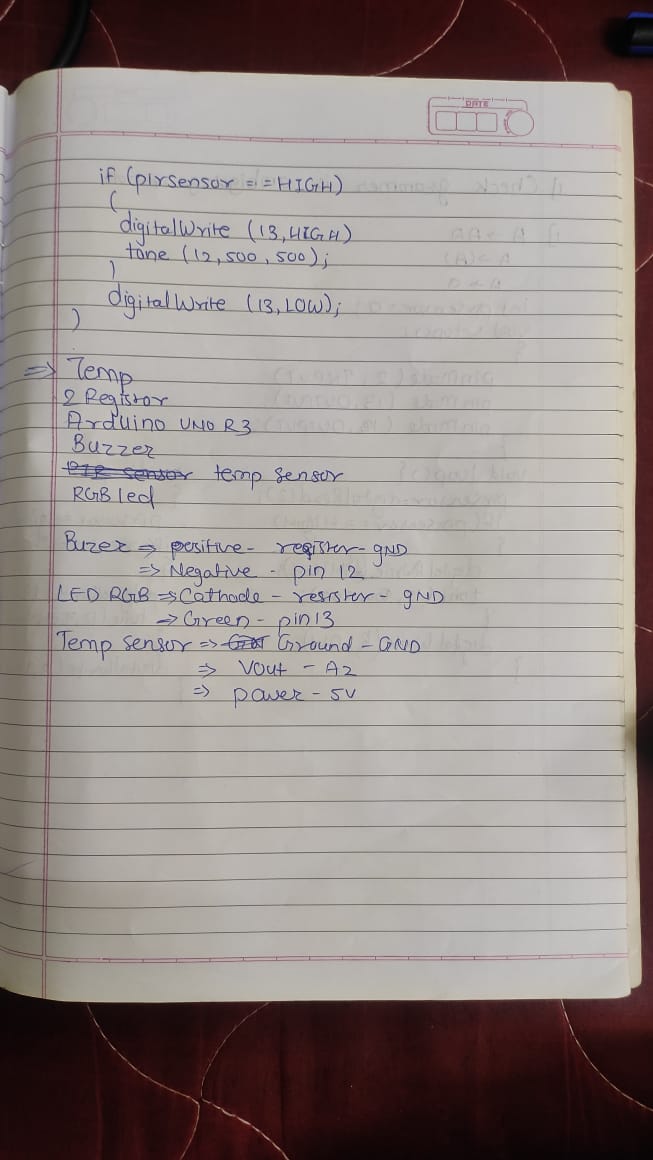 DATE
if (pirsensor == HIGH)
{
digitalWrite (13, HIGH)
tone (12, 500, 500);
}
digitalWrite (13, LOW);
}
⇒ Temp
2 Register
Arduino UNO R3
Buzzer
PIR sensor temp sensor
RGB led
Buzer ⇒ positive - register - GND
⇒ Negative - pin 12
LED RGB ⇒ Cathode - resister - GND
⇒ Green - pin 13
Temp sensor ⇒ Ground - GND
⇒ Vout - A2
⇒ power - 5V